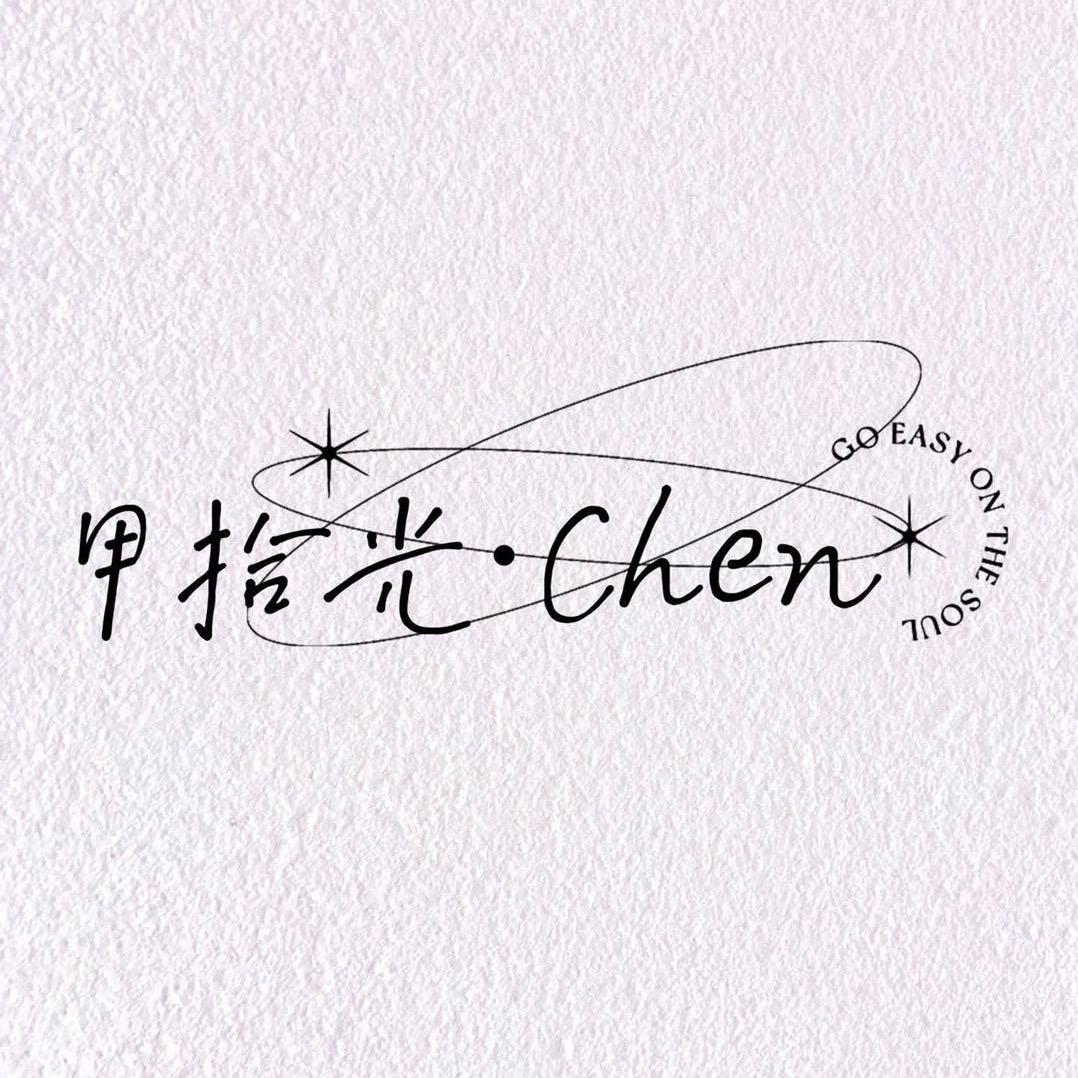 甲拾光·Chen
GO EASY ON THE SOUL